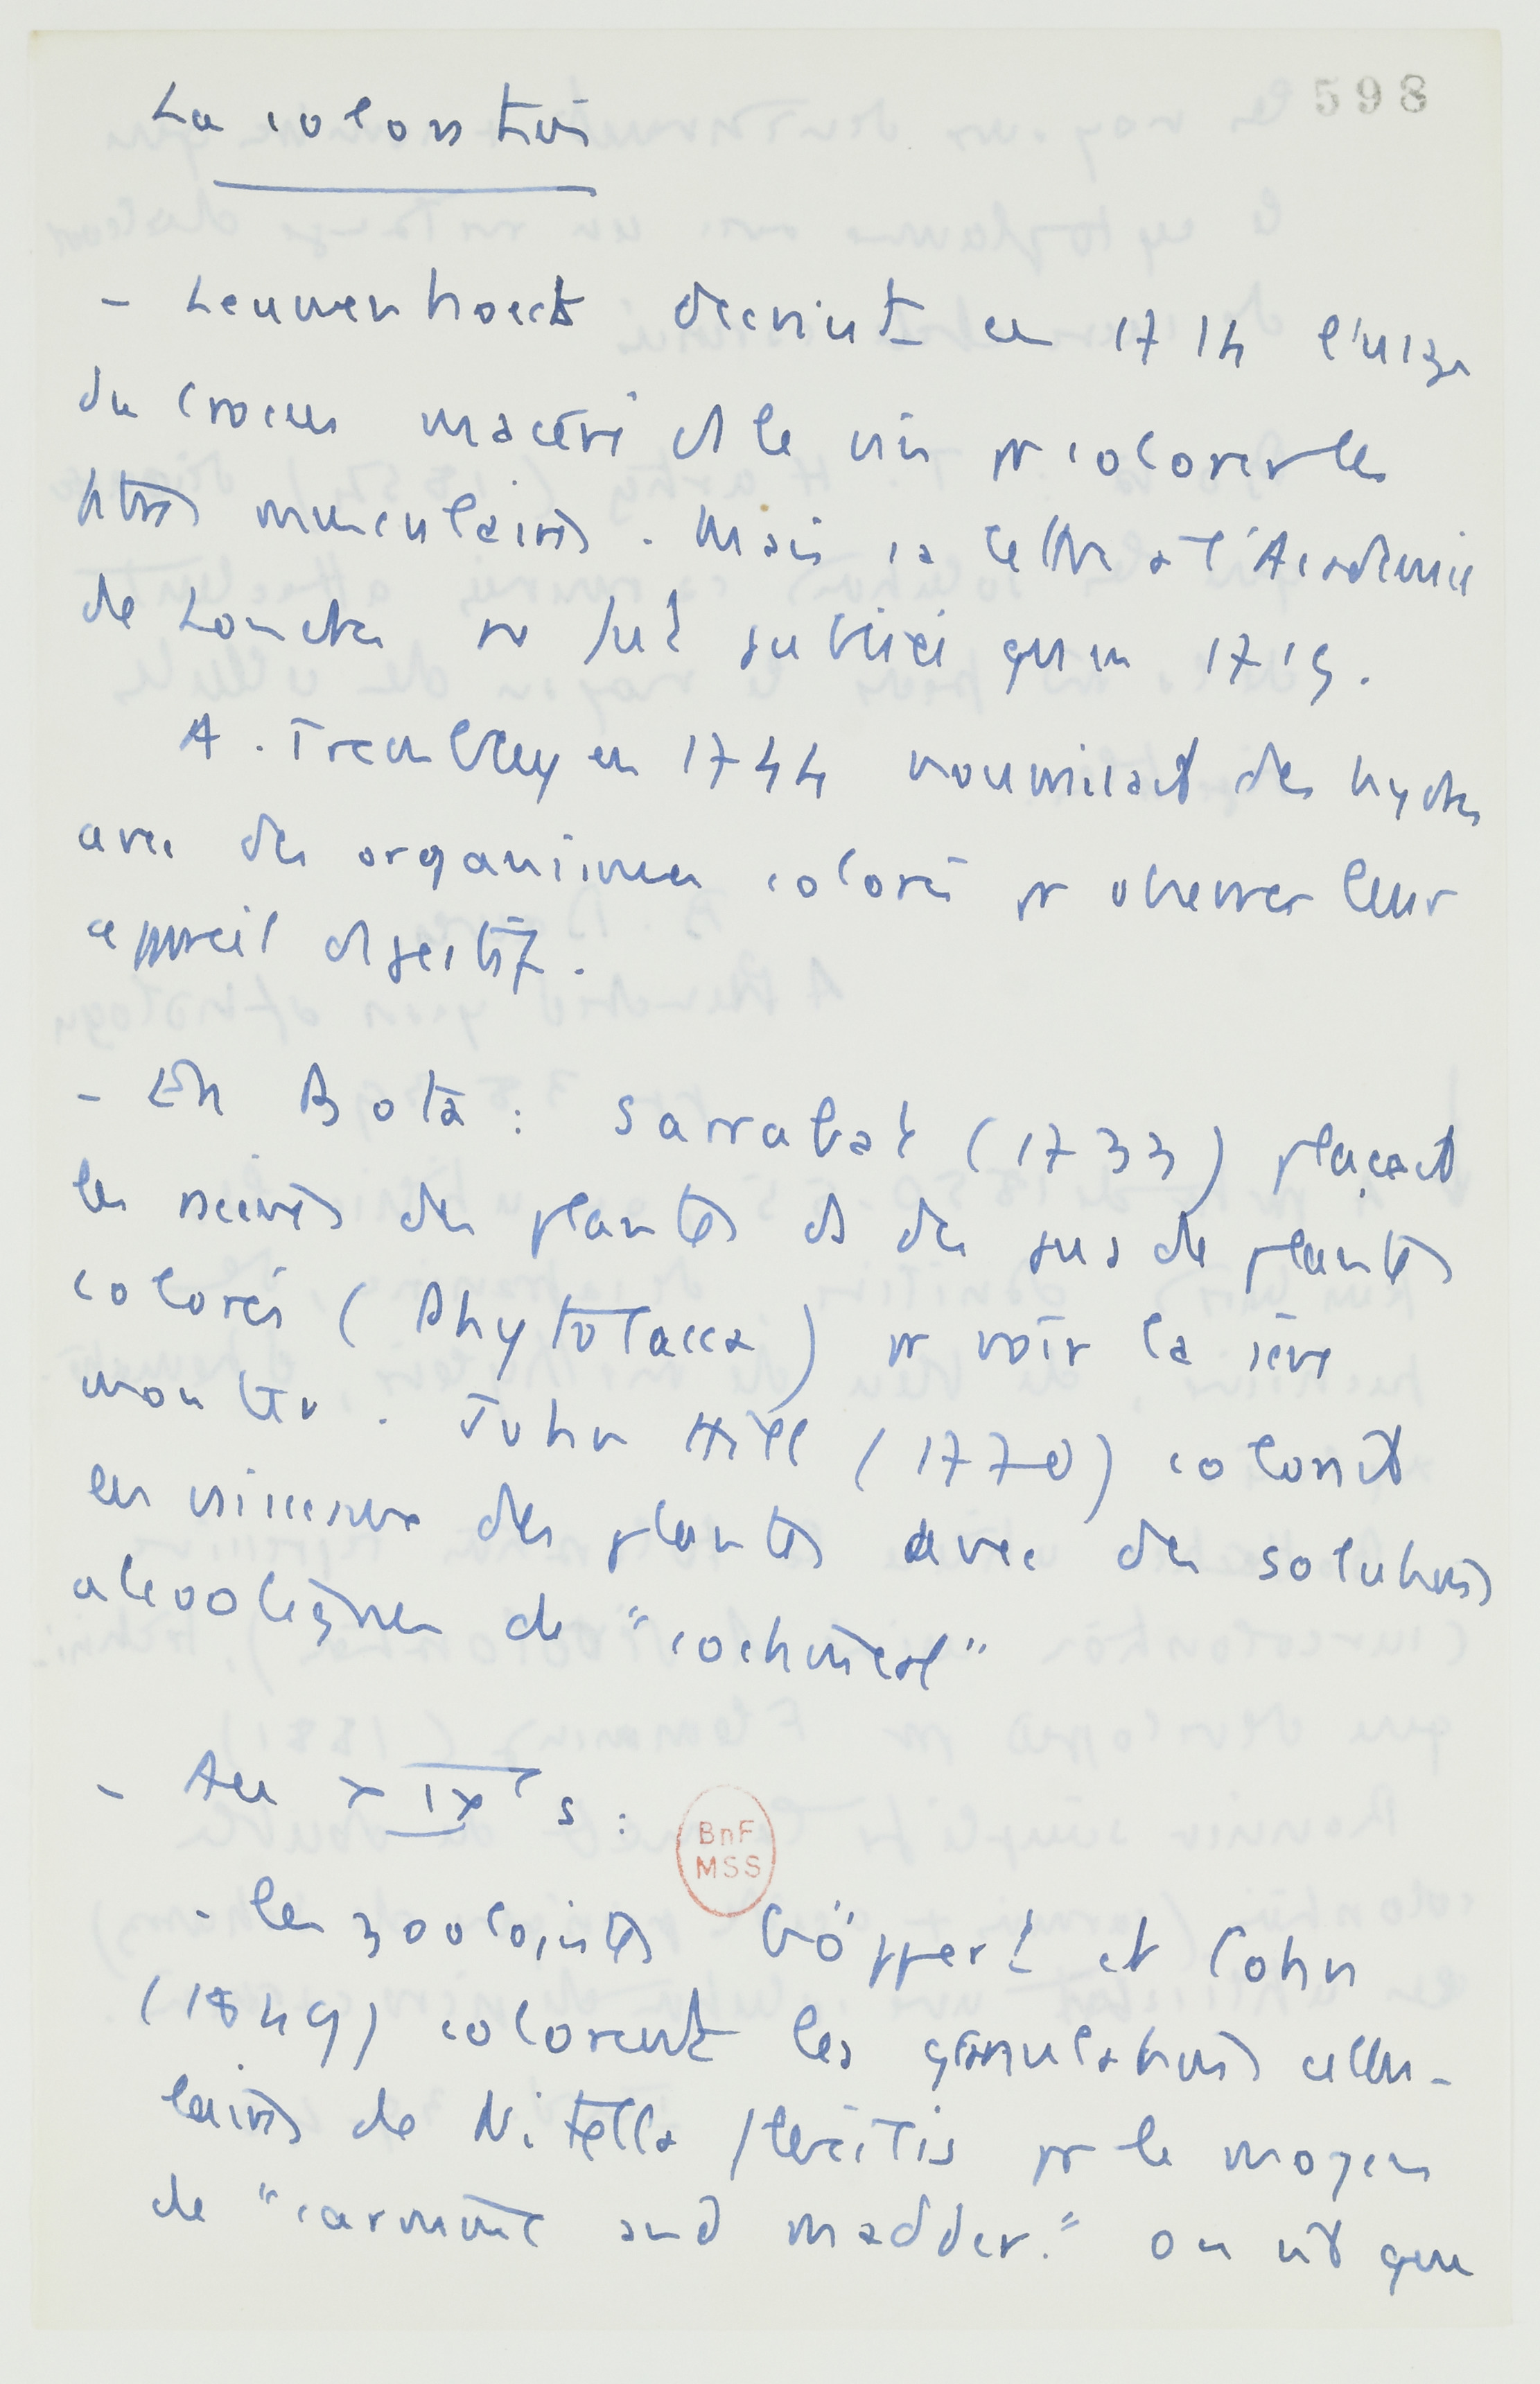 598
La coloration
- Leuwenhoeck décrivit en 1714 l'usage
du crocus macéré ds le vin pr colorer les
fibres musculaires. Mais sa lettre à l'Académie
de Londres ne fut publiée qu'en 1719.
A. Trembley en 1744 nourrissait des hydres
avec des organismes colorés pr observer leur
appareil digestif.
- En Bota : Sarrabat (1733) plaçait
les racines des plantes ds des jus de plantes
colorés (Phytolacca) pr voir la sève
monter. John Hill (1770) colorait
les vaisseaux des plantes avec des solutions
alcooliques de "cochineal"
- Au XIXe s :
BnF
MSS
- les zoologistes Göppert et Cohn
(1849) colorent les granulations cellu-
laires de Nitella flexilis pr le moyen
de "carmine and madder." On vit que